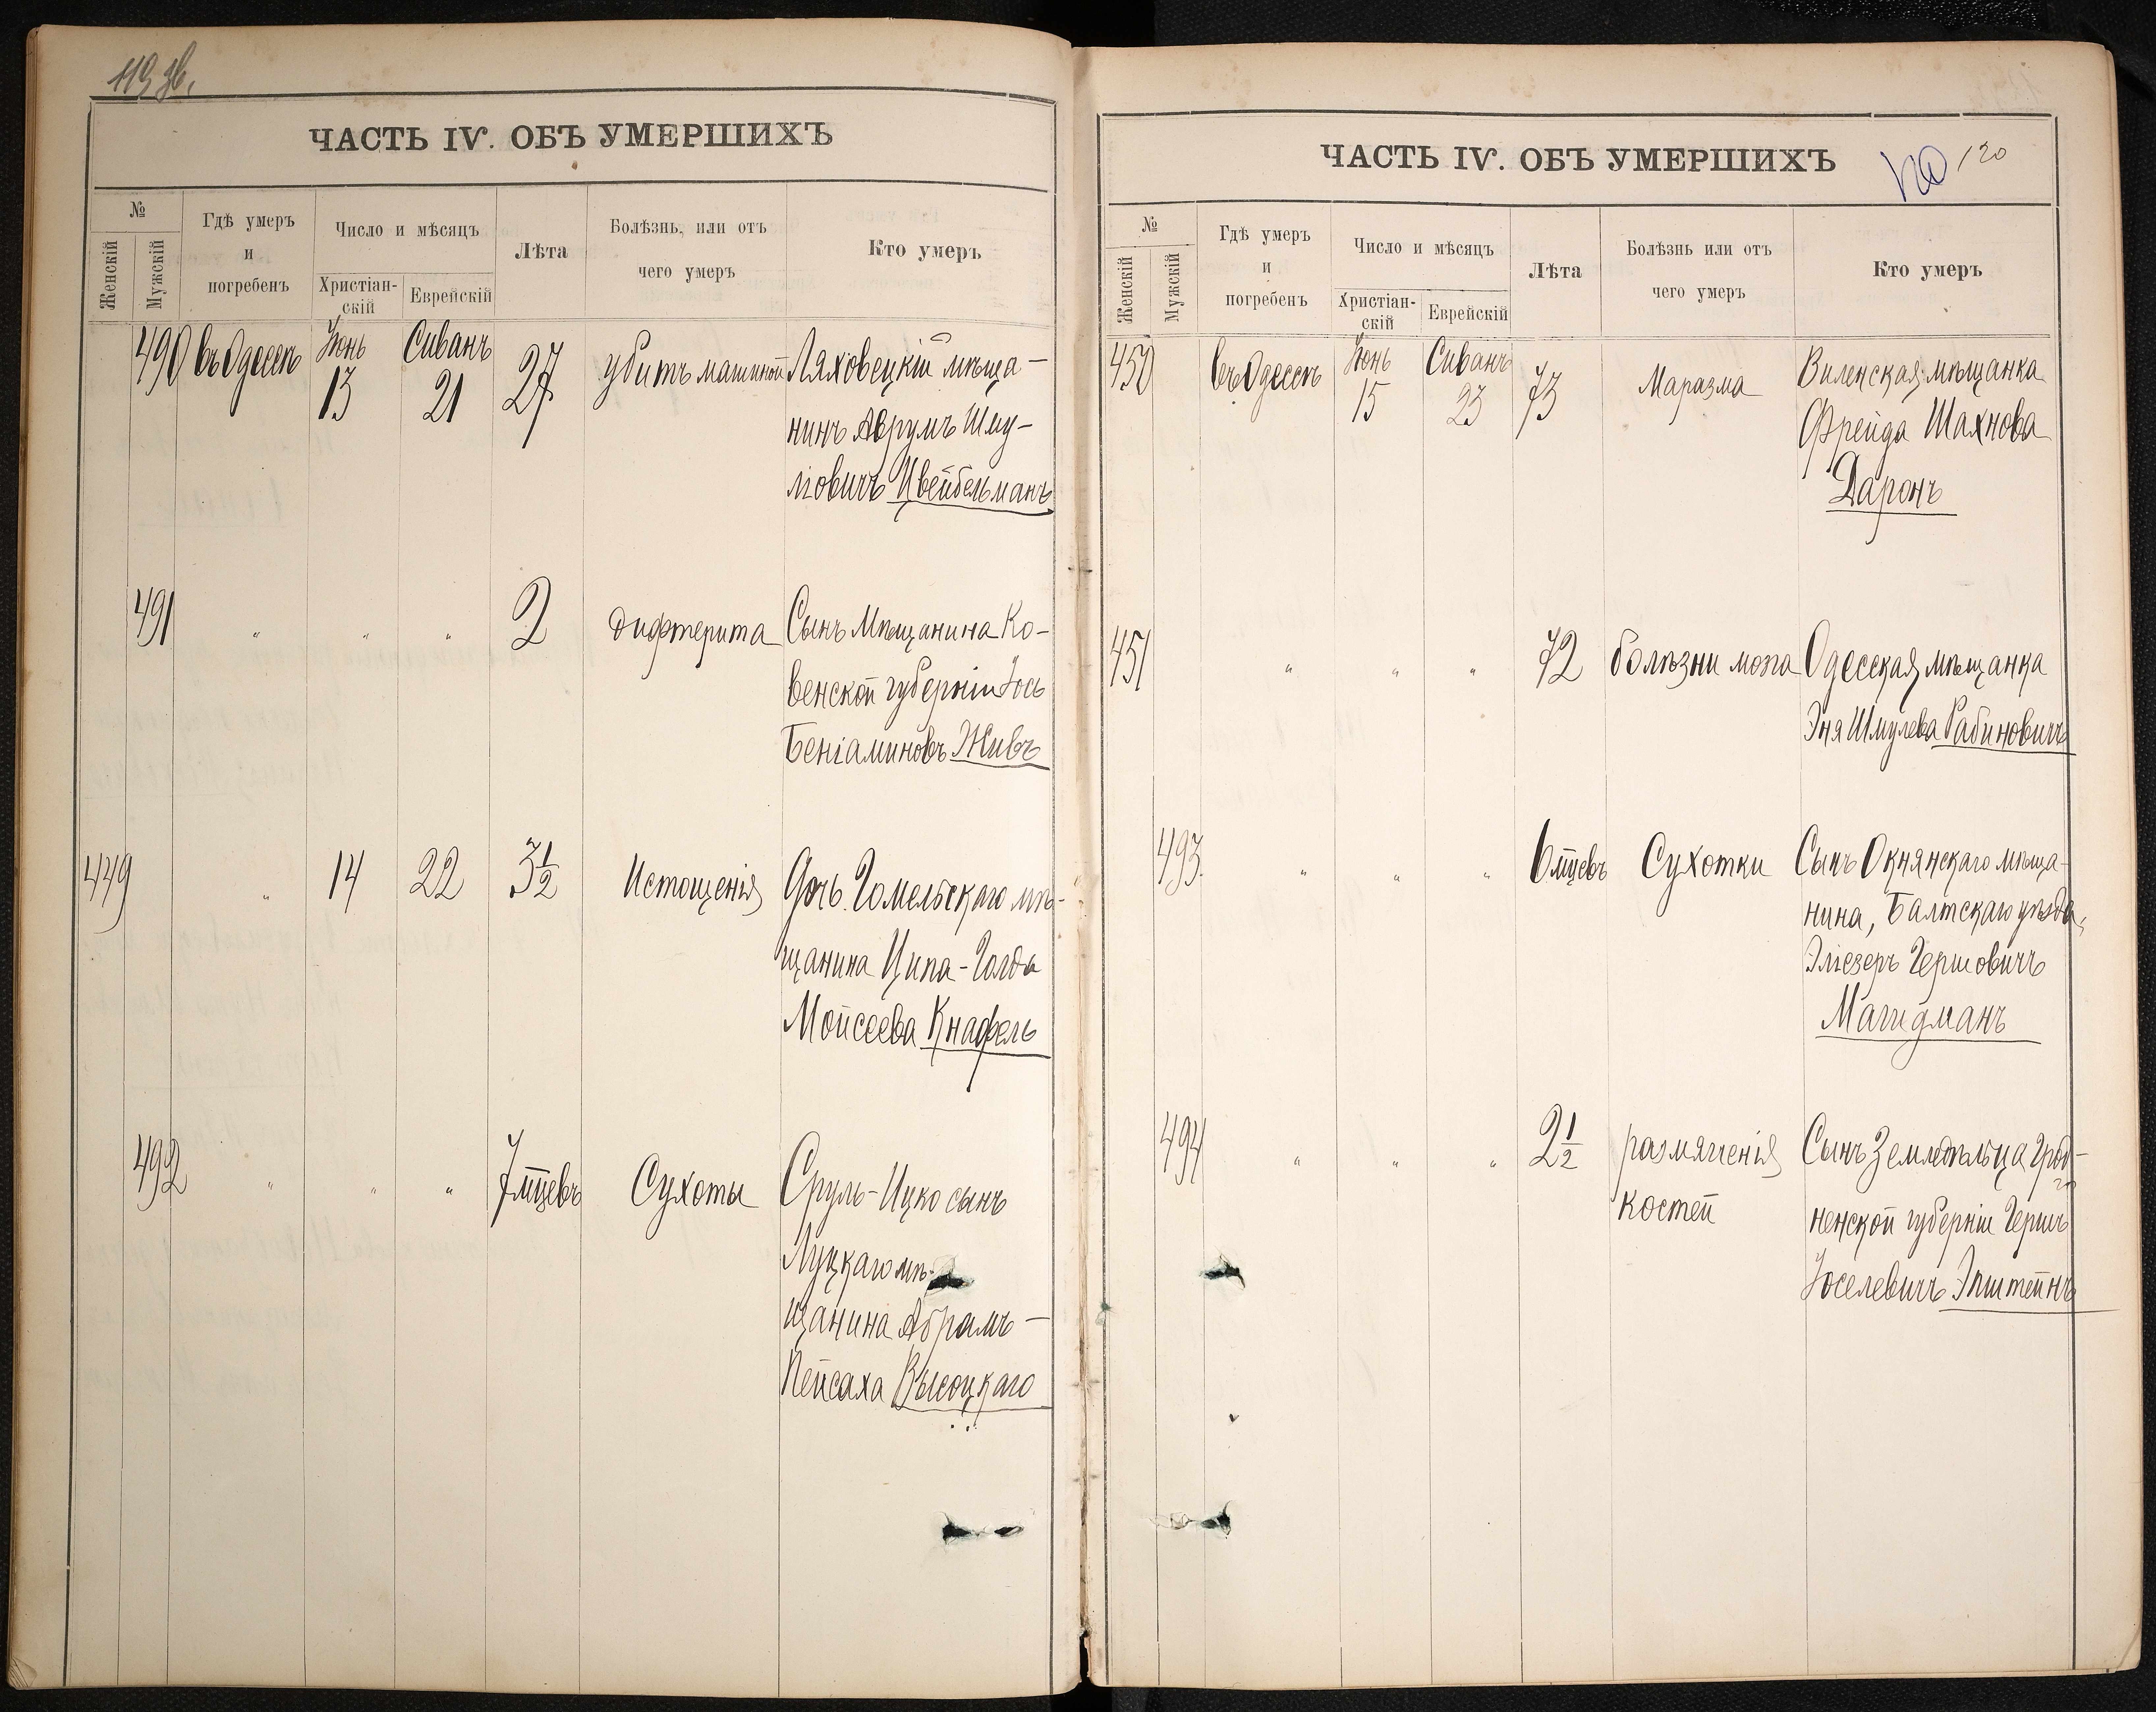 119 зв.
ЧАСТЬ IV. ОБЪ УМЕРШИХЪ
№
Женскій
Мужскій
Гдѣ умеръ
и
погребенъ
Число и мѣсяцъ
Христіан-
скій
Еврейскій
Лѣта
Болѣзнь, или отъ
чего умеръ
Кто умеръ
490 въ Одессѣ Іюнь 13 Сиванъ 21 27 убитъ машиной Ляховецкій мѣща-
нинъ Аврумъ Шму-
лiовичъ Цвейбельманъ
491 " " " 2 дифтерита Сынъ Мѣщанина Ко-
венской губерніи Іось
Беніаминовъ Живъ
449 " 14 22 3½ Истощенія Дочь Гомельскаго мѣ-
щанина Ципа-Голда
Мойсеева Кнафель
492 " " " 7 мцевъ Сухоты Сруль-Ицко сынъ
Луцкаго мѣ-
щанина Абрамъ-
Пейсаха Высоцкаго
ЧАСТЬ IV. ОБЪ УМЕРШИХЪ
120 120
№
Женскій
Мужскій
Гдѣ умеръ
и
погребенъ
Число и мѣсяцъ
Христіан-
скій
Еврейскій
Лѣта
Болѣзнь или отъ
чего умеръ
Кто умеръ
450 въ Одессѣ Іюнь 15 Сиванъ 23 73 Маразма Виленская мѣщанка
Фрейда Шахнова
Даронъ
451 " " " 72 болѣзни мозга Одесская мѣщанка
Эня Шмулева Рабиновичъ
493 " " " 6 мцевъ Сухотки Сынъ Окнянскаго мѣща-
нина, Балтскаго уѣзда,
Эліезеръ Гершовичъ
Магидманъ
494 " " " 2½ размягченія Сынъ Земледѣльца Грод-
костей ненской губерніи Гершъ
Іоселевичъ Эпштейнъ